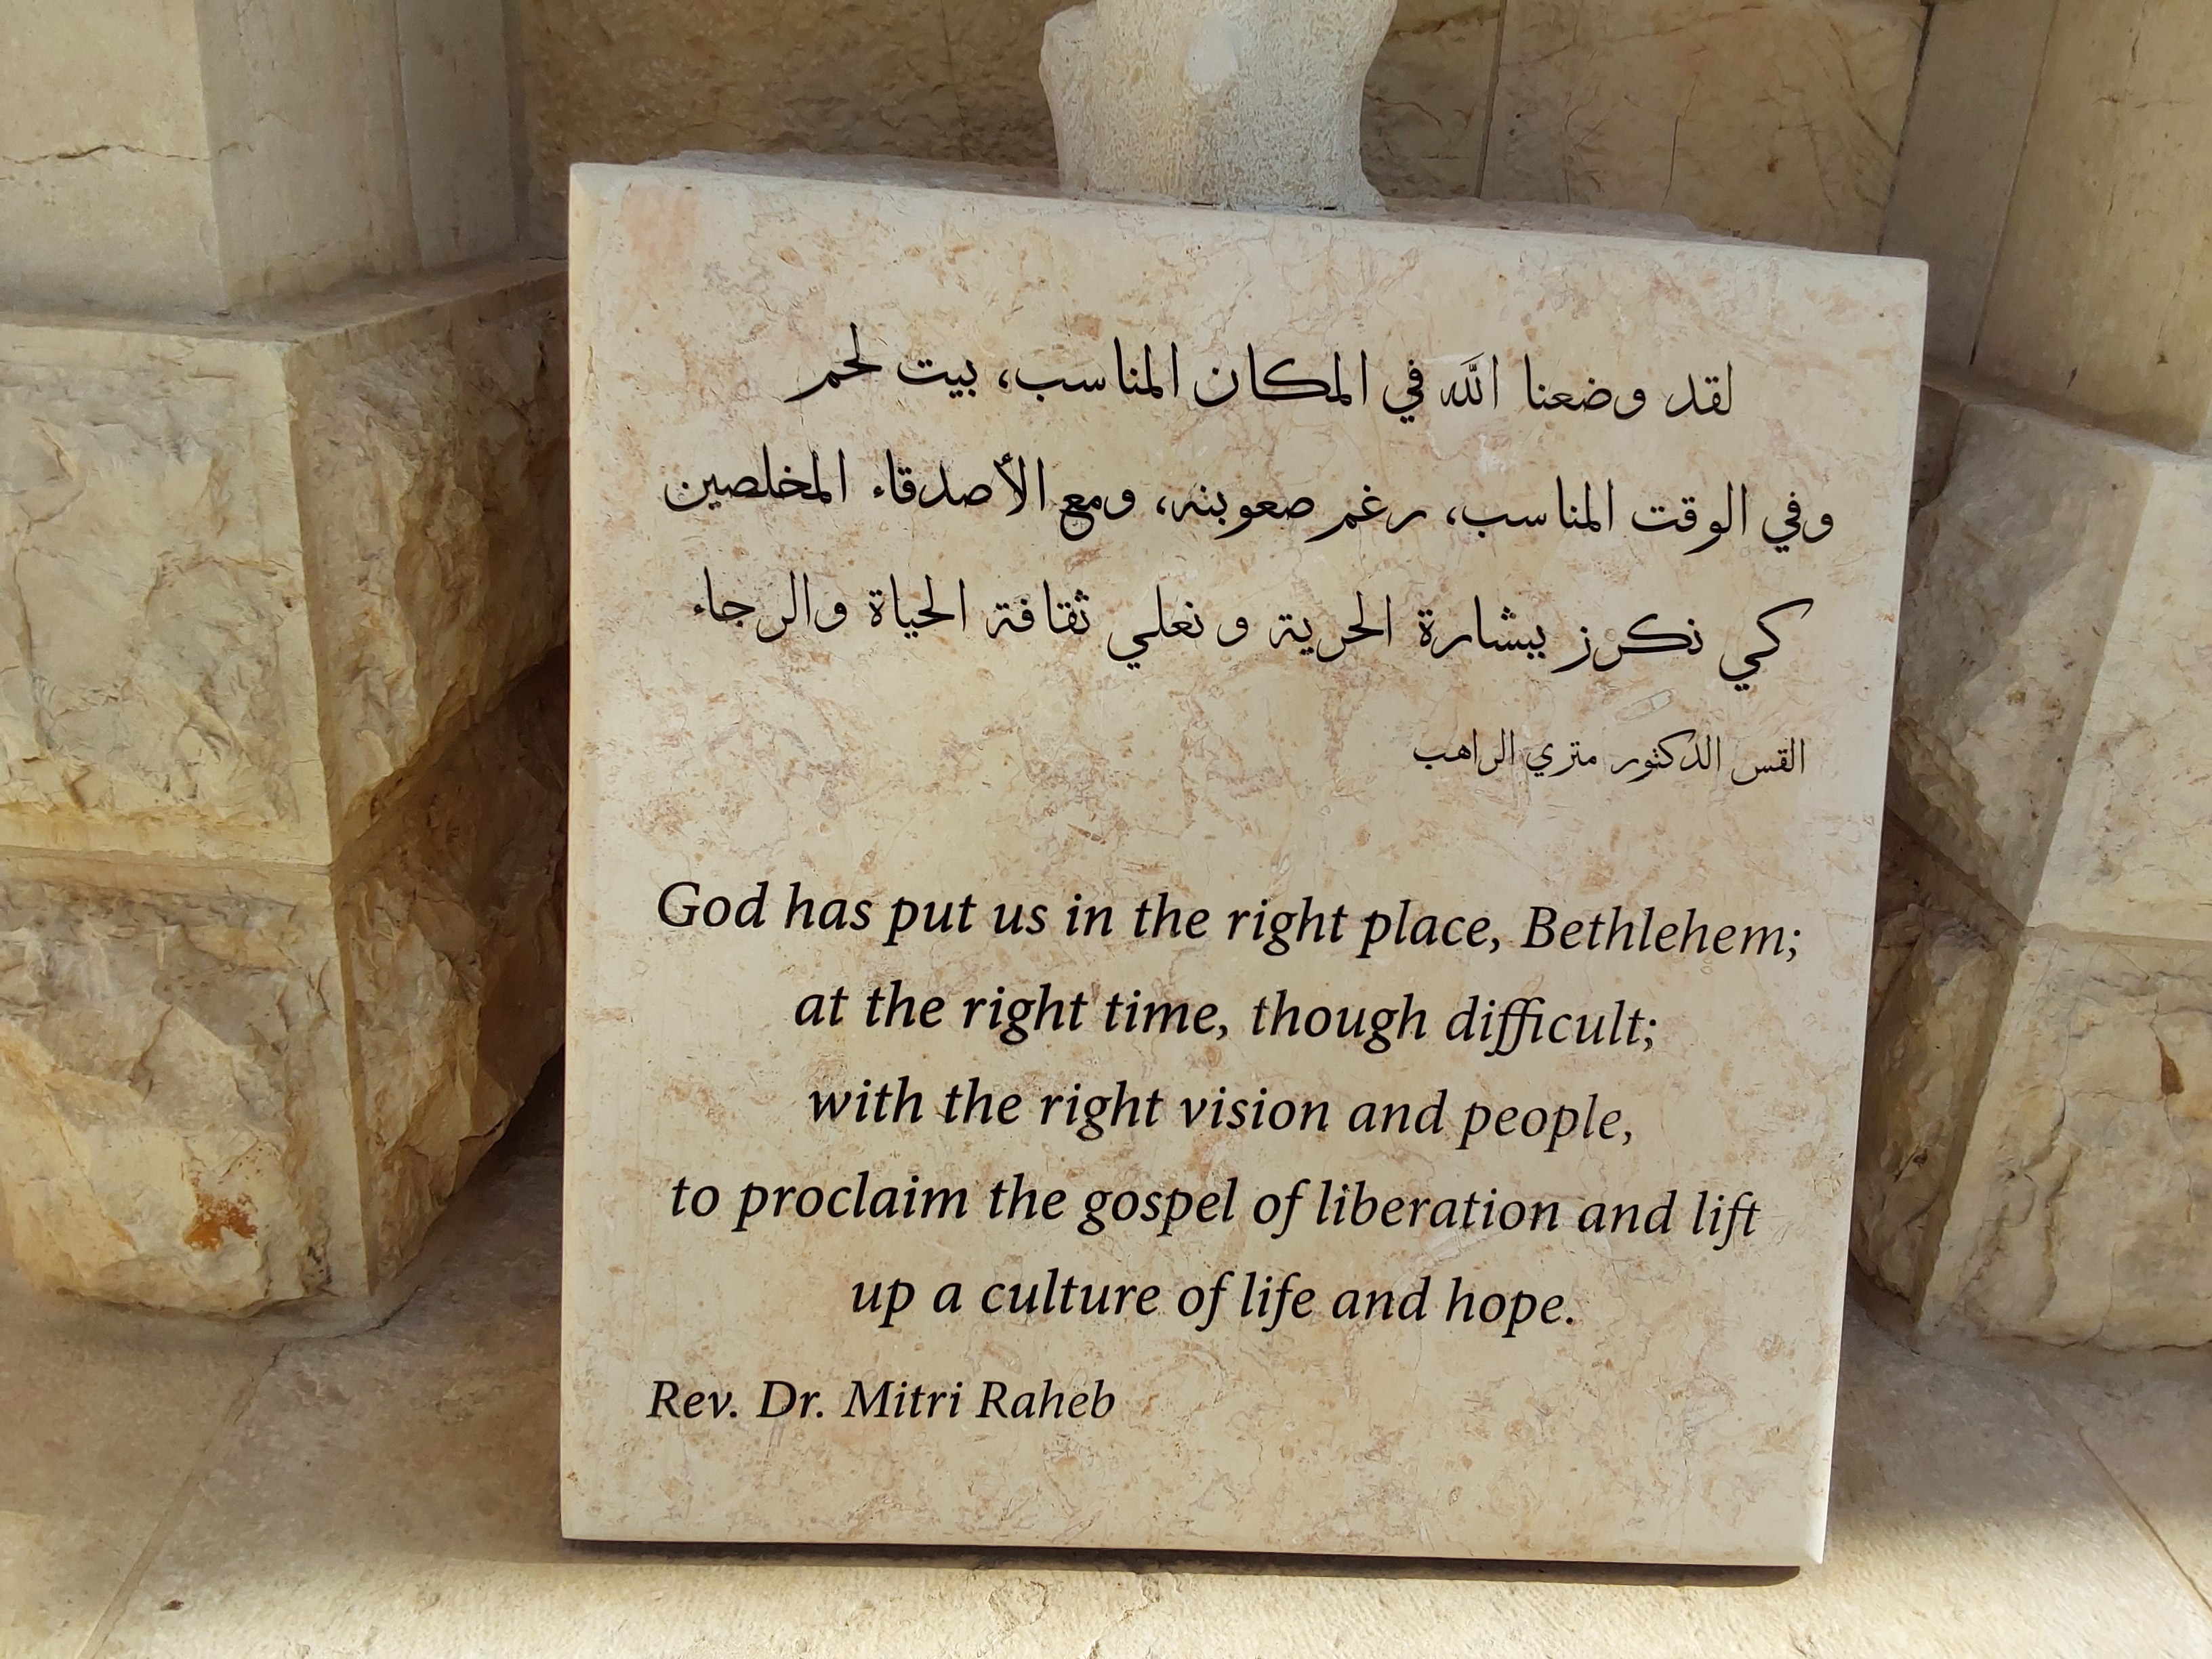 لقد وضعنا الله في المكان المناسب، بيت لحم
وفي الوقت المناسب، رغم صعوبته، ومع الأصدقاء المخلصين
كي نكرز ببشارة الحرية ونعلي ثقافة الحياة والرجاء
القس الدكتور متري الراهب
God has put us in the right place, Bethlehem;
at the right time, though difficult;
with the right vision and people,
to proclaim the gospel of liberation and lift
up a culture of life and hope.
Rev. Dr. Mitri Raheb